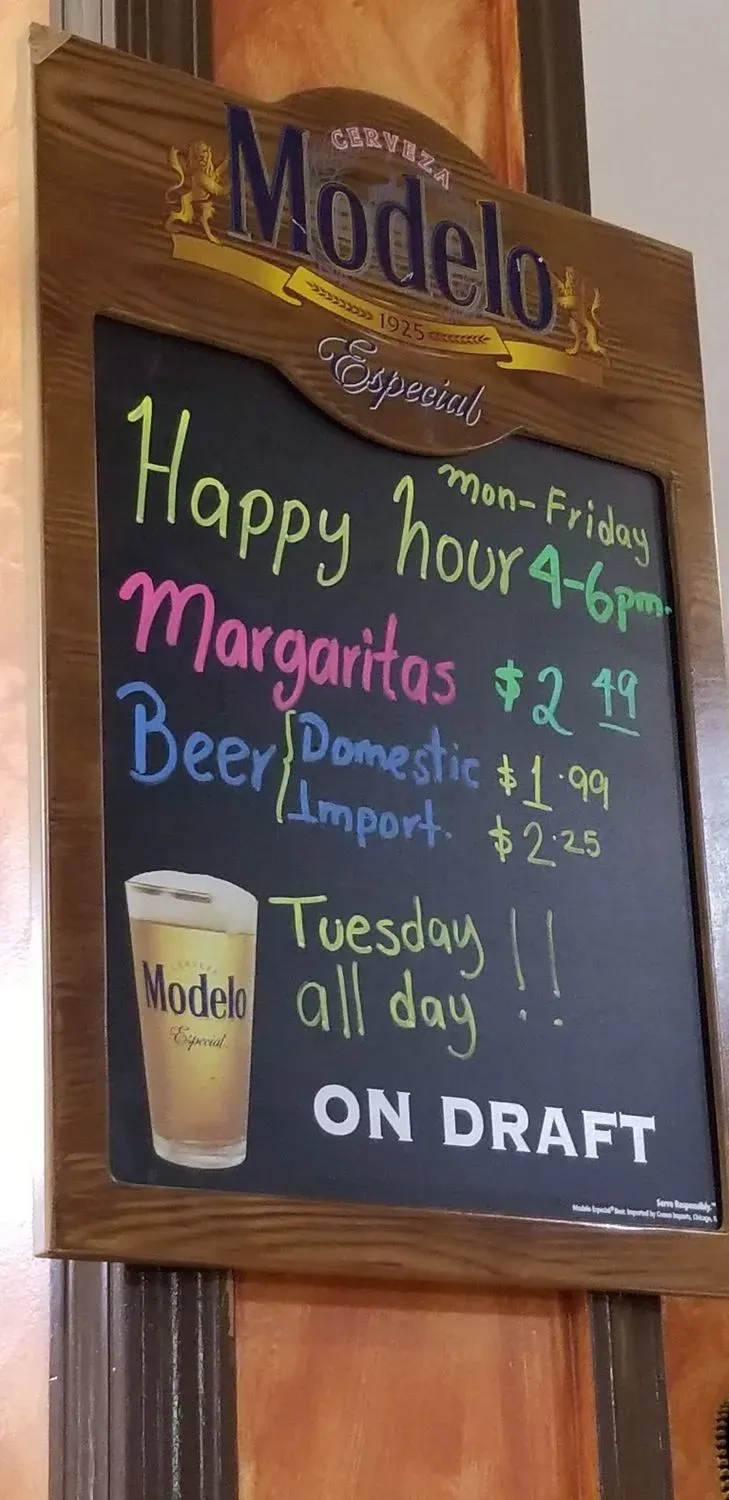 CERVEZA
Modelo
1925
Especial
Mon-Friday
Happy hour 4-6pm.
Margaritas $2 49
Beer { Domestic $1.99
Import. $2.25
Tuesday !!
all day
CERVEZA
Modelo
Especial
ON DRAFT
Serve Responsibly.
Modelo Especial® Beer. Imported by Crown Imports, Chicago,